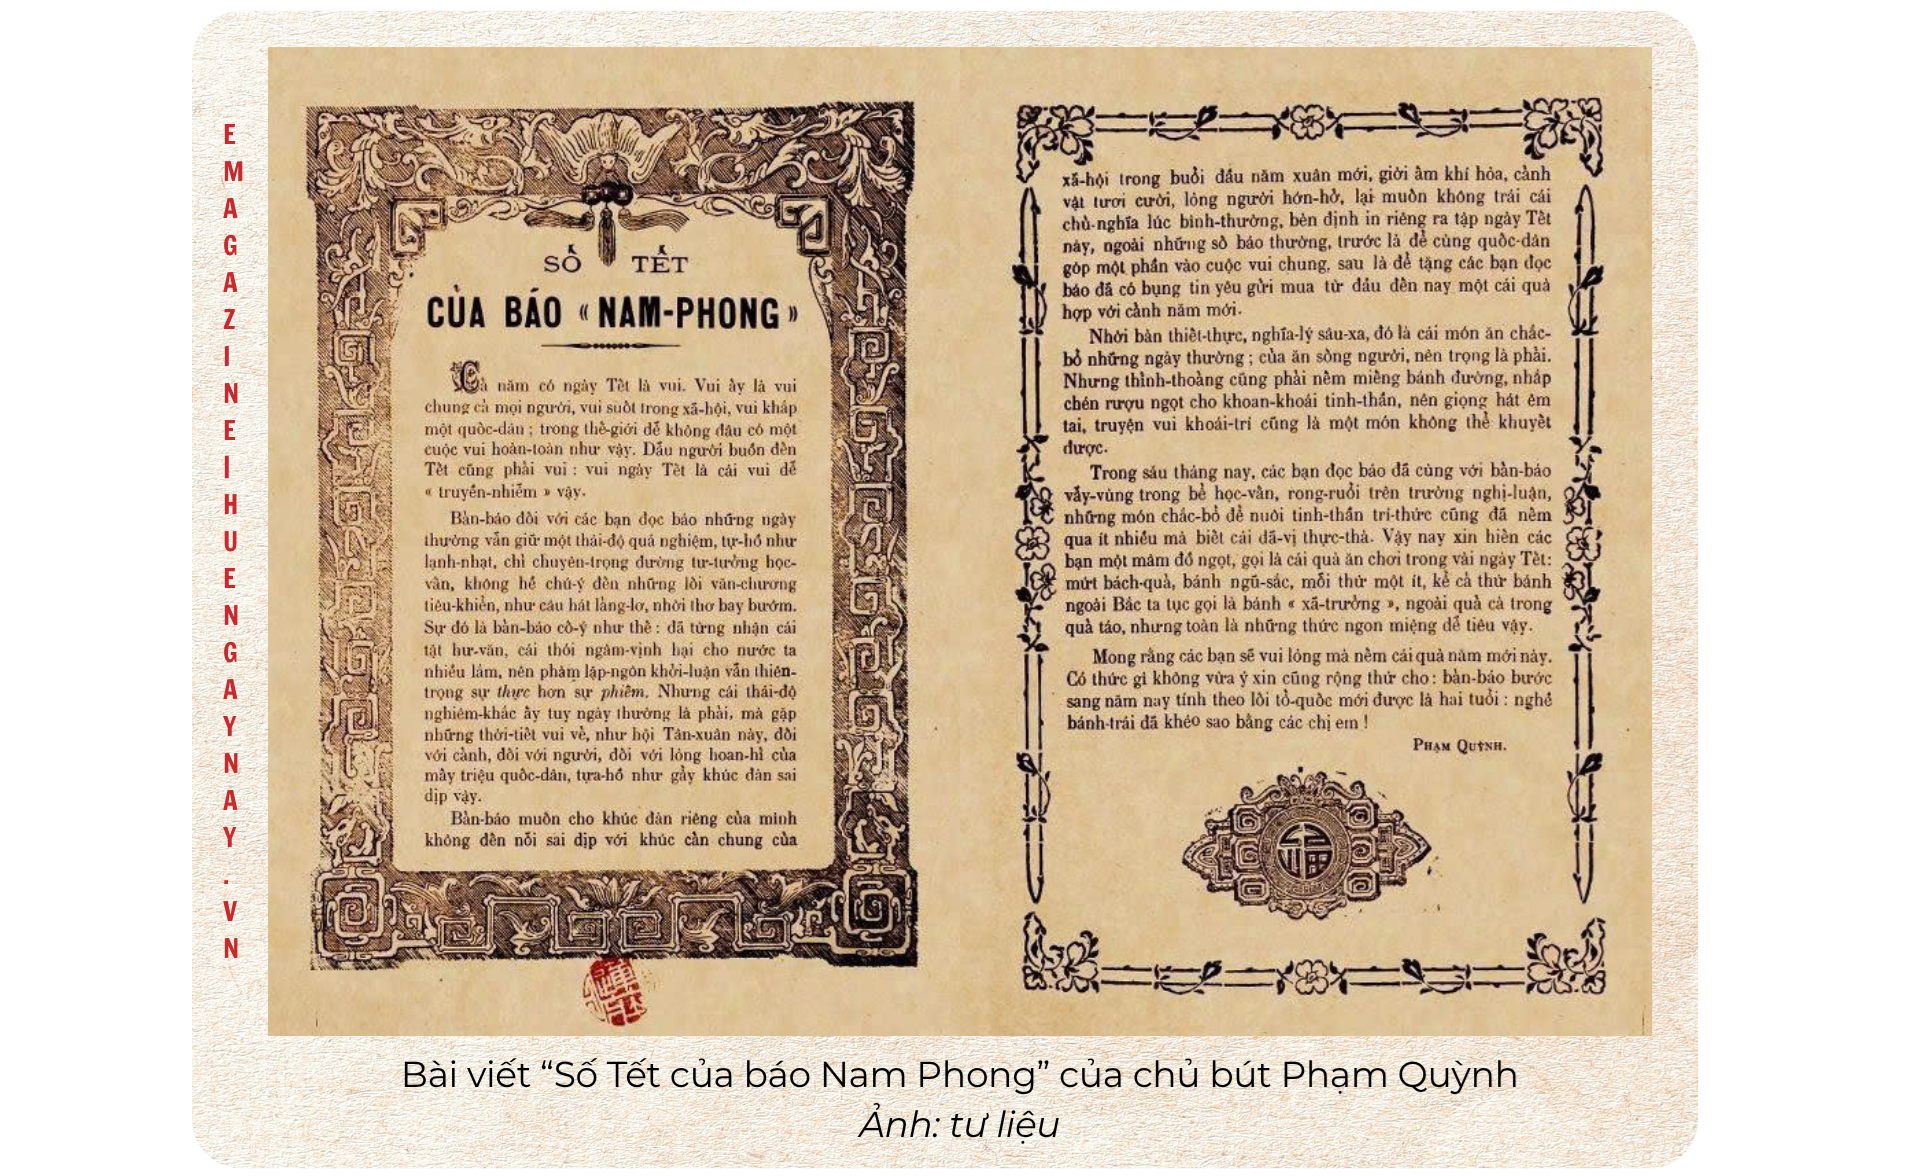 EMAGAZINEIHUENGAYNAY.VN
SỐ TẾT
CỦA BÁO « NAM-PHONG »
Cả năm có ngày Tết là vui. Vui ấy là vui
chung cả mọi người, vui suốt trong xã-hội, vui khắp
một quốc-dân ; trong thế-giới dễ không đâu có một
cuộc vui hoàn-toàn như vậy. Dẫu người buồn đến
Tết cũng phải vui : vui ngày Tết là cái vui dễ
« truyền-nhiễm » vậy.
Bản-báo đối với các bạn đọc báo những ngày
thường vẫn giữ một thái-độ quá nghiêm, tự-hồ như
lạnh-nhạt, chỉ chuyên-trọng đường tư-tưởng học-
vấn, không hề chú-ý đến những lối văn-chương
tiêu-khiển, như câu hát lẳng-lơ, nhời thơ bay bướm.
Sự đó là bản-báo cố-ý như thế : đã từng nhận cái
tật hư-văn, cái thói ngâm-vịnh hại cho nước ta
nhiều lắm, nên phàm lập-ngôn khởi-luận vẫn thiên-
trọng sự thực hơn sự phiếm. Nhưng cái thái-độ
nghiêm-khắc ấy tuy ngày thường là phải, mà gặp
những thời-tiết vui vẻ, như hội Tân-xuân này, đối
với cảnh, đối với người, đối với lòng hoan-hỉ của
mấy triệu quốc-dân, tựa-hồ như gảy khúc đàn sai
dịp vậy.
Bản-báo muốn cho khúc đàn riêng của mình
không đến nỗi sai dịp với khúc cần chung của
xã-hội trong buổi đầu năm xuân mới, giời ấm khí hòa, cảnh
vật tươi cười, lòng người hớn-hở, lại muốn không trái cái
chủ-nghĩa lúc bình-thường, bèn định in riêng ra tập ngày Tết
này, ngoài những số báo thường, trước là để cùng quốc-dân
góp một phần vào cuộc vui chung, sau là để tặng các bạn đọc
báo đã có bụng tin yêu gửi mua từ đầu đến nay một cái quà
hợp với cảnh năm mới.
Nhời bàn thiết-thực, nghĩa-lý sâu-xa, đó là cái món ăn chắc-
bổ những ngày thường ; của ăn sống người, nên trọng là phải.
Nhưng thỉnh-thoảng cũng phải nếm miếng bánh đường, nhấp
chén rượu ngọt cho khoan-khoái tinh-thần, nên giọng hát êm
tai, truyện vui khoái-trí cũng là một món không thể khuyết
được.
Trong sáu tháng nay, các bạn đọc báo đã cùng với bản-báo
vẫy-vùng trong bể học-vấn, rong-ruổi trên trường nghị-luận,
những món chắc-bổ để nuôi tinh-thần trí-thức cũng đã nếm
qua ít nhiều mà biết cái dã-vị thực-thà. Vậy nay xin hiến các
bạn một mâm đồ ngọt, gọi là cái quà ăn chơi trong vài ngày Tết:
mứt bách-quả, bánh ngũ-sắc, mỗi thứ một ít, kể cả thứ bánh
ngoài Bắc ta tục gọi là bánh « xã-trưởng », ngoài quả cà trong
quả táo, nhưng toàn là những thức ngon miệng dễ tiêu vậy.
Mong rằng các bạn sẽ vui lòng mà nếm cái quà năm mới này.
Có thức gì không vừa ý xin cũng rộng thứ cho : bản-báo bước
sang năm nay tính theo lối tổ-quốc mới được là hai tuổi : nghề
bánh-trái đã khéo sao bằng các chị em !
PHẠM QUỲNH.
福
Bài viết “Số Tết của báo Nam Phong” của chủ bút Phạm Quỳnh
Ảnh: tư liệu